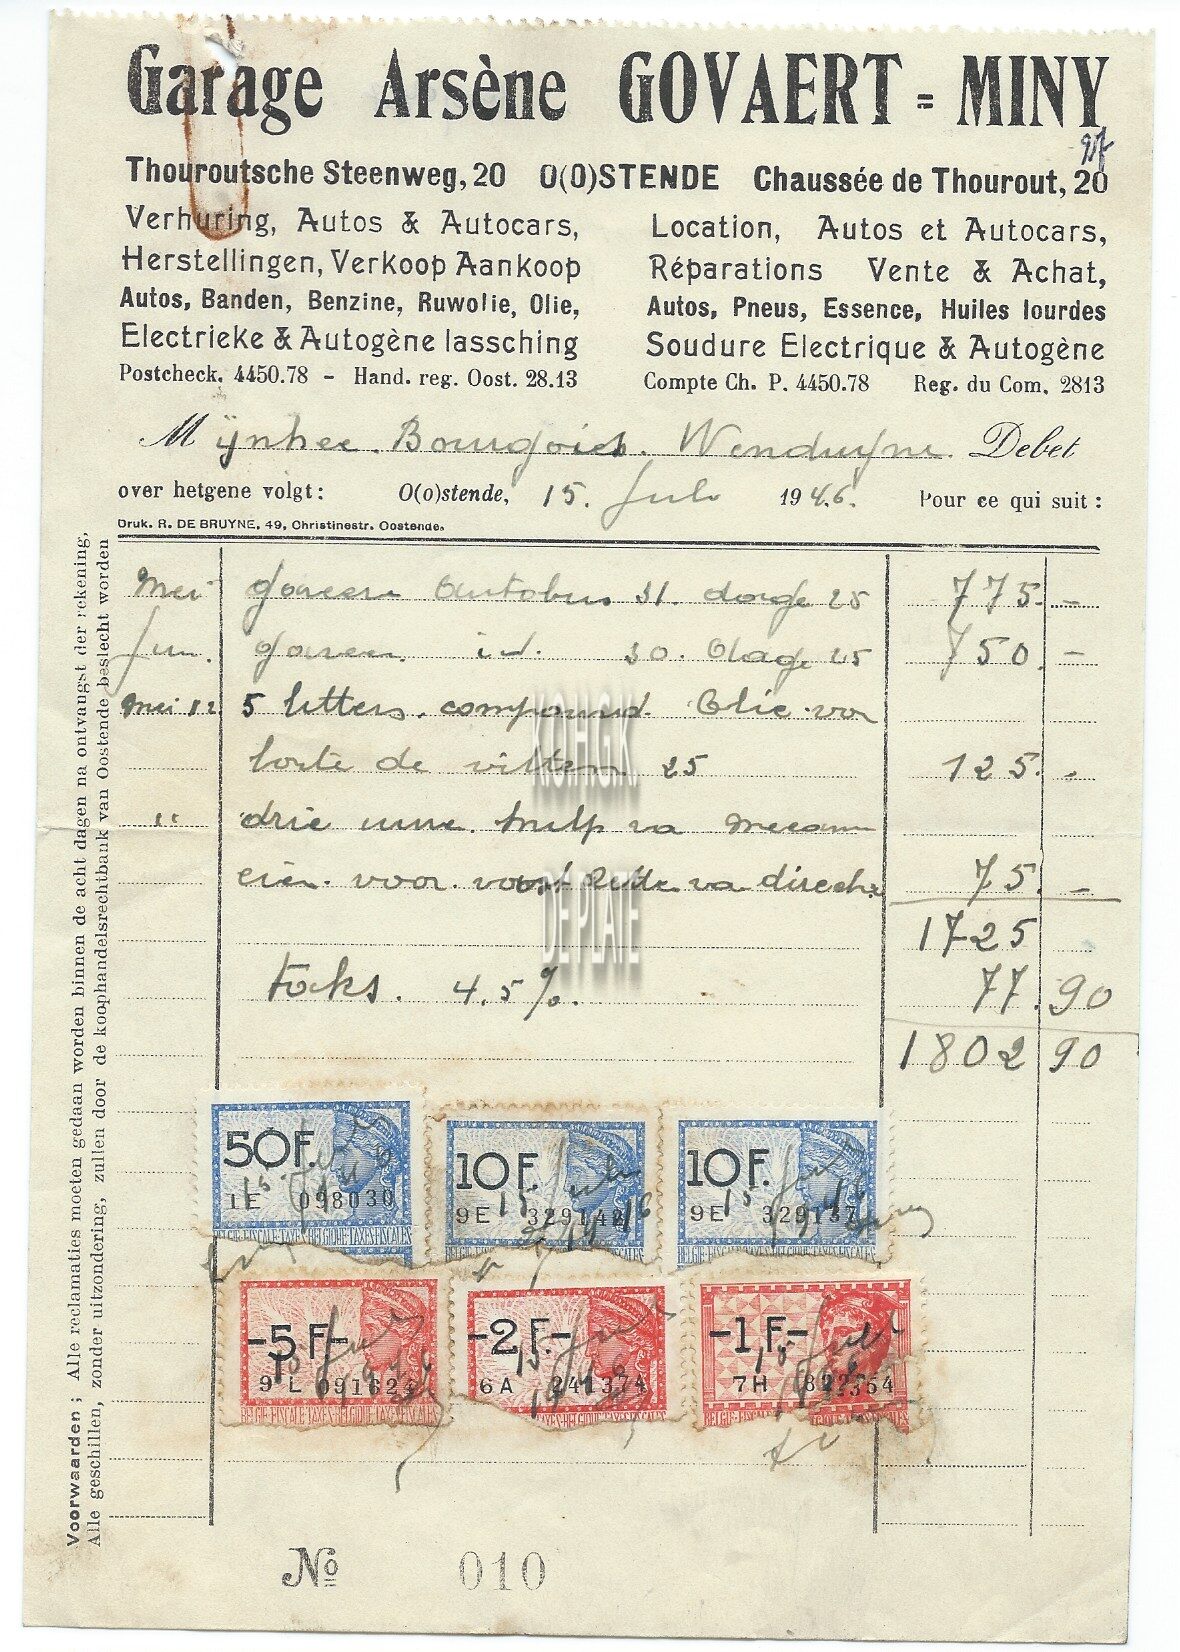 Garage Arsène GOVAERT = MINY
Thouroutsche Steenweg, 20 O(O)STENDE Chaussée de Thourout, 20
Verhuring, Autos & Autocars,
Herstellingen, Verkoop Aankoop
Autos, Banden, Benzine, Ruwolie, Olie,
Electrieke & Autogène lassching
Postcheck. 4450.78 - Hand. reg. Oost. 28.13
Location, Autos et Autocars,
Réparations Vente & Achat,
Autos, Pneus, Essence, Huiles lourdes
Soudure Electrique & Autogène
Compte Ch. P. 4450.78 Reg. du Com. 2813
Mijnhee. Bourgoies. Wenduyne. Debet
over hetgene volgt: O(o)stende, 15. Juli 1946. Pour ce qui suit:
Druk. R. DE BRUYNE, 49, Christinestr. Oostende.
Voorwaarden; Alle reclamaties moeten gedaan worden binnen de acht dagen na ontvangst der rekening,
Alle geschillen, zonder uitzondering, zullen door de koophandelsrechtbank van Oostende beslecht worden
Mei Autobus 31. dage 25 775. -
Jun. id. 30. dage 25 750. -
Mei 12 5 litters. compound. Olie. vor
25 125. -
" drie ure. hulp va mecan
cien. voor. va direct 75. -
1725
taks. 4.5%. 77.90
1802 90
KOHGK
DE PLATE
50 F. 10 F. 10 F.
1E 098030 9E 329142 9E 329137
BELGIE-FISCALE TAXES-BELGIQUE-TAXES FISCALES
-5 F- -2 F.- -1 F-
9 L 091624 6 A 241374 7H 822354
No 010